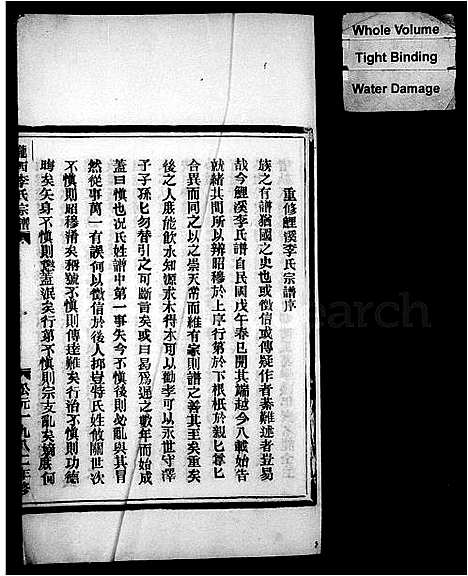 Whole Volume
Tight Binding
Water Damage
重修鯉溪李氏宗譜序
族之有譜猶國之史也或徵信或傳疑作者綦難述者豈易
哉今鯉溪李氏譜自民國戊午春已開其端越今八載始告
就緒其間所以辨昭穆於上序行第於下根柢於親仁尊仁
合異而同之以之崇天常而維有家則譜之善其至矣重矣
後之人庶能飲水知源求木得本可以勸孝可以永世守澤
子子孫仁勿替引之可斷言矣或曰易爲遲之數年而始成
蓋曰愼也況氏姓譜中第一事失今不愼後則必亂與其冒
然從事萬一有誤何以徵信於後人抑豈特氏姓攸關世次
不愼則昭穆淆矣稱號不愼則傳遠難矣行治不愼則功德
晦矣矢身不愼則懲蓋泯矣行第不愼則宗支亂矣嫡庶何
隴西李氏宗譜